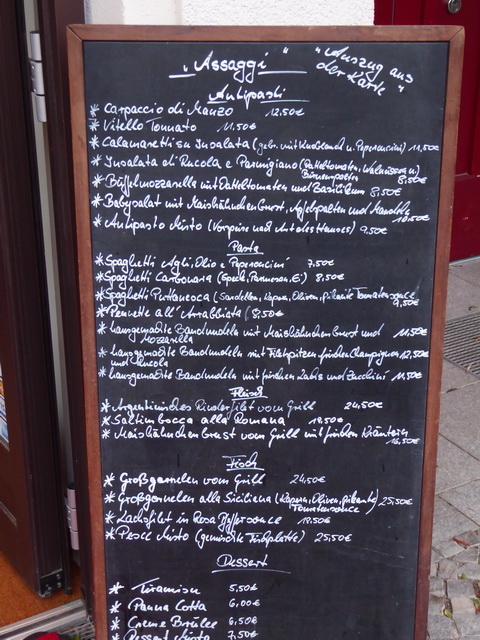 „Assaggi“
„Auszug aus
der Karte“
Antipasti
* Carpaccio di Manzo 12,50€
* Vitello Tonnato 11,50€
* Calamaretti su Insalata (gebr. mit Knoblauch u. Peperoncini) 11,50€
* Insalata di Rucola e Parmigiano (Datteltomaten, Walnüssen u)
Birnenspalten 8,50€
* Büffelmozzarella mit Datteltomaten und Basilikum 8,50€
* Babysalat mit Maishähnchenbrust, Apfelspalten und Mandeln 10,50€
* Antipasto Misto (Vorspeise nach Art des Hauses) 9,50€
Pasta
* Spaghetti Agli, Olio e Peperoncini 7,50€
* Spaghetti Carbonara (Speck, Parmesan, Ei) 8,50€
* Spaghetti Puttanesca (Sardellen, Kapern, Oliven, pikante Tomatensauce 9,50€
* Pennette all'Arrabbiata 8,50€
* hausgemachte Bandnudeln mit Maishähnchenbrust und 11,50€
Mozzarella
* hausgemachte Bandnudeln mit Fischspitzen frischen Champignon 12,50€
und Rucola
* hausgemachte Bandnudeln mit frischen Lachs und Zucchini 11,50€
Fleisch
* Argentinisches Rinderfilet vom Grill 24,50€
* Saltimbocca alla Romana 19,50€
* Maishähnchenbrust vom Grill mit frischen Kräutern
16,50€
Fisch
* Großgarnelen vom Grill 24,50€
* Großgarnelen alla Siciliana (Kapern, Oliven, pikante) 25,50€
Tomatensauce
* Lachsfilet in Rosa Pfeffersauce 19,50€
* Pesce Misto (gemischte Fischplatte) 25,50€
Dessert
* Tiramisu 5,50€
* Panna Cotta 6,00€
* Creme Brûlée 6,50€
* Dessert Misto 7,50€